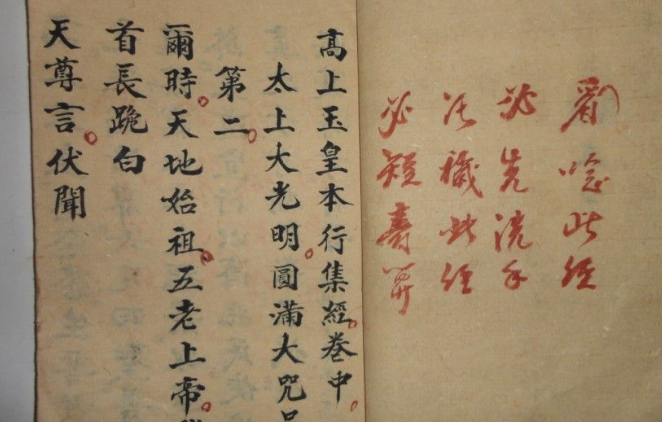 看唸此經
必先洗手
污穢此經
必短壽算
高上玉皇本行集經卷中
太上大光明圓滿大咒品
第二
爾時天地始祖五老上帝
首長跪白
天尊言伏聞